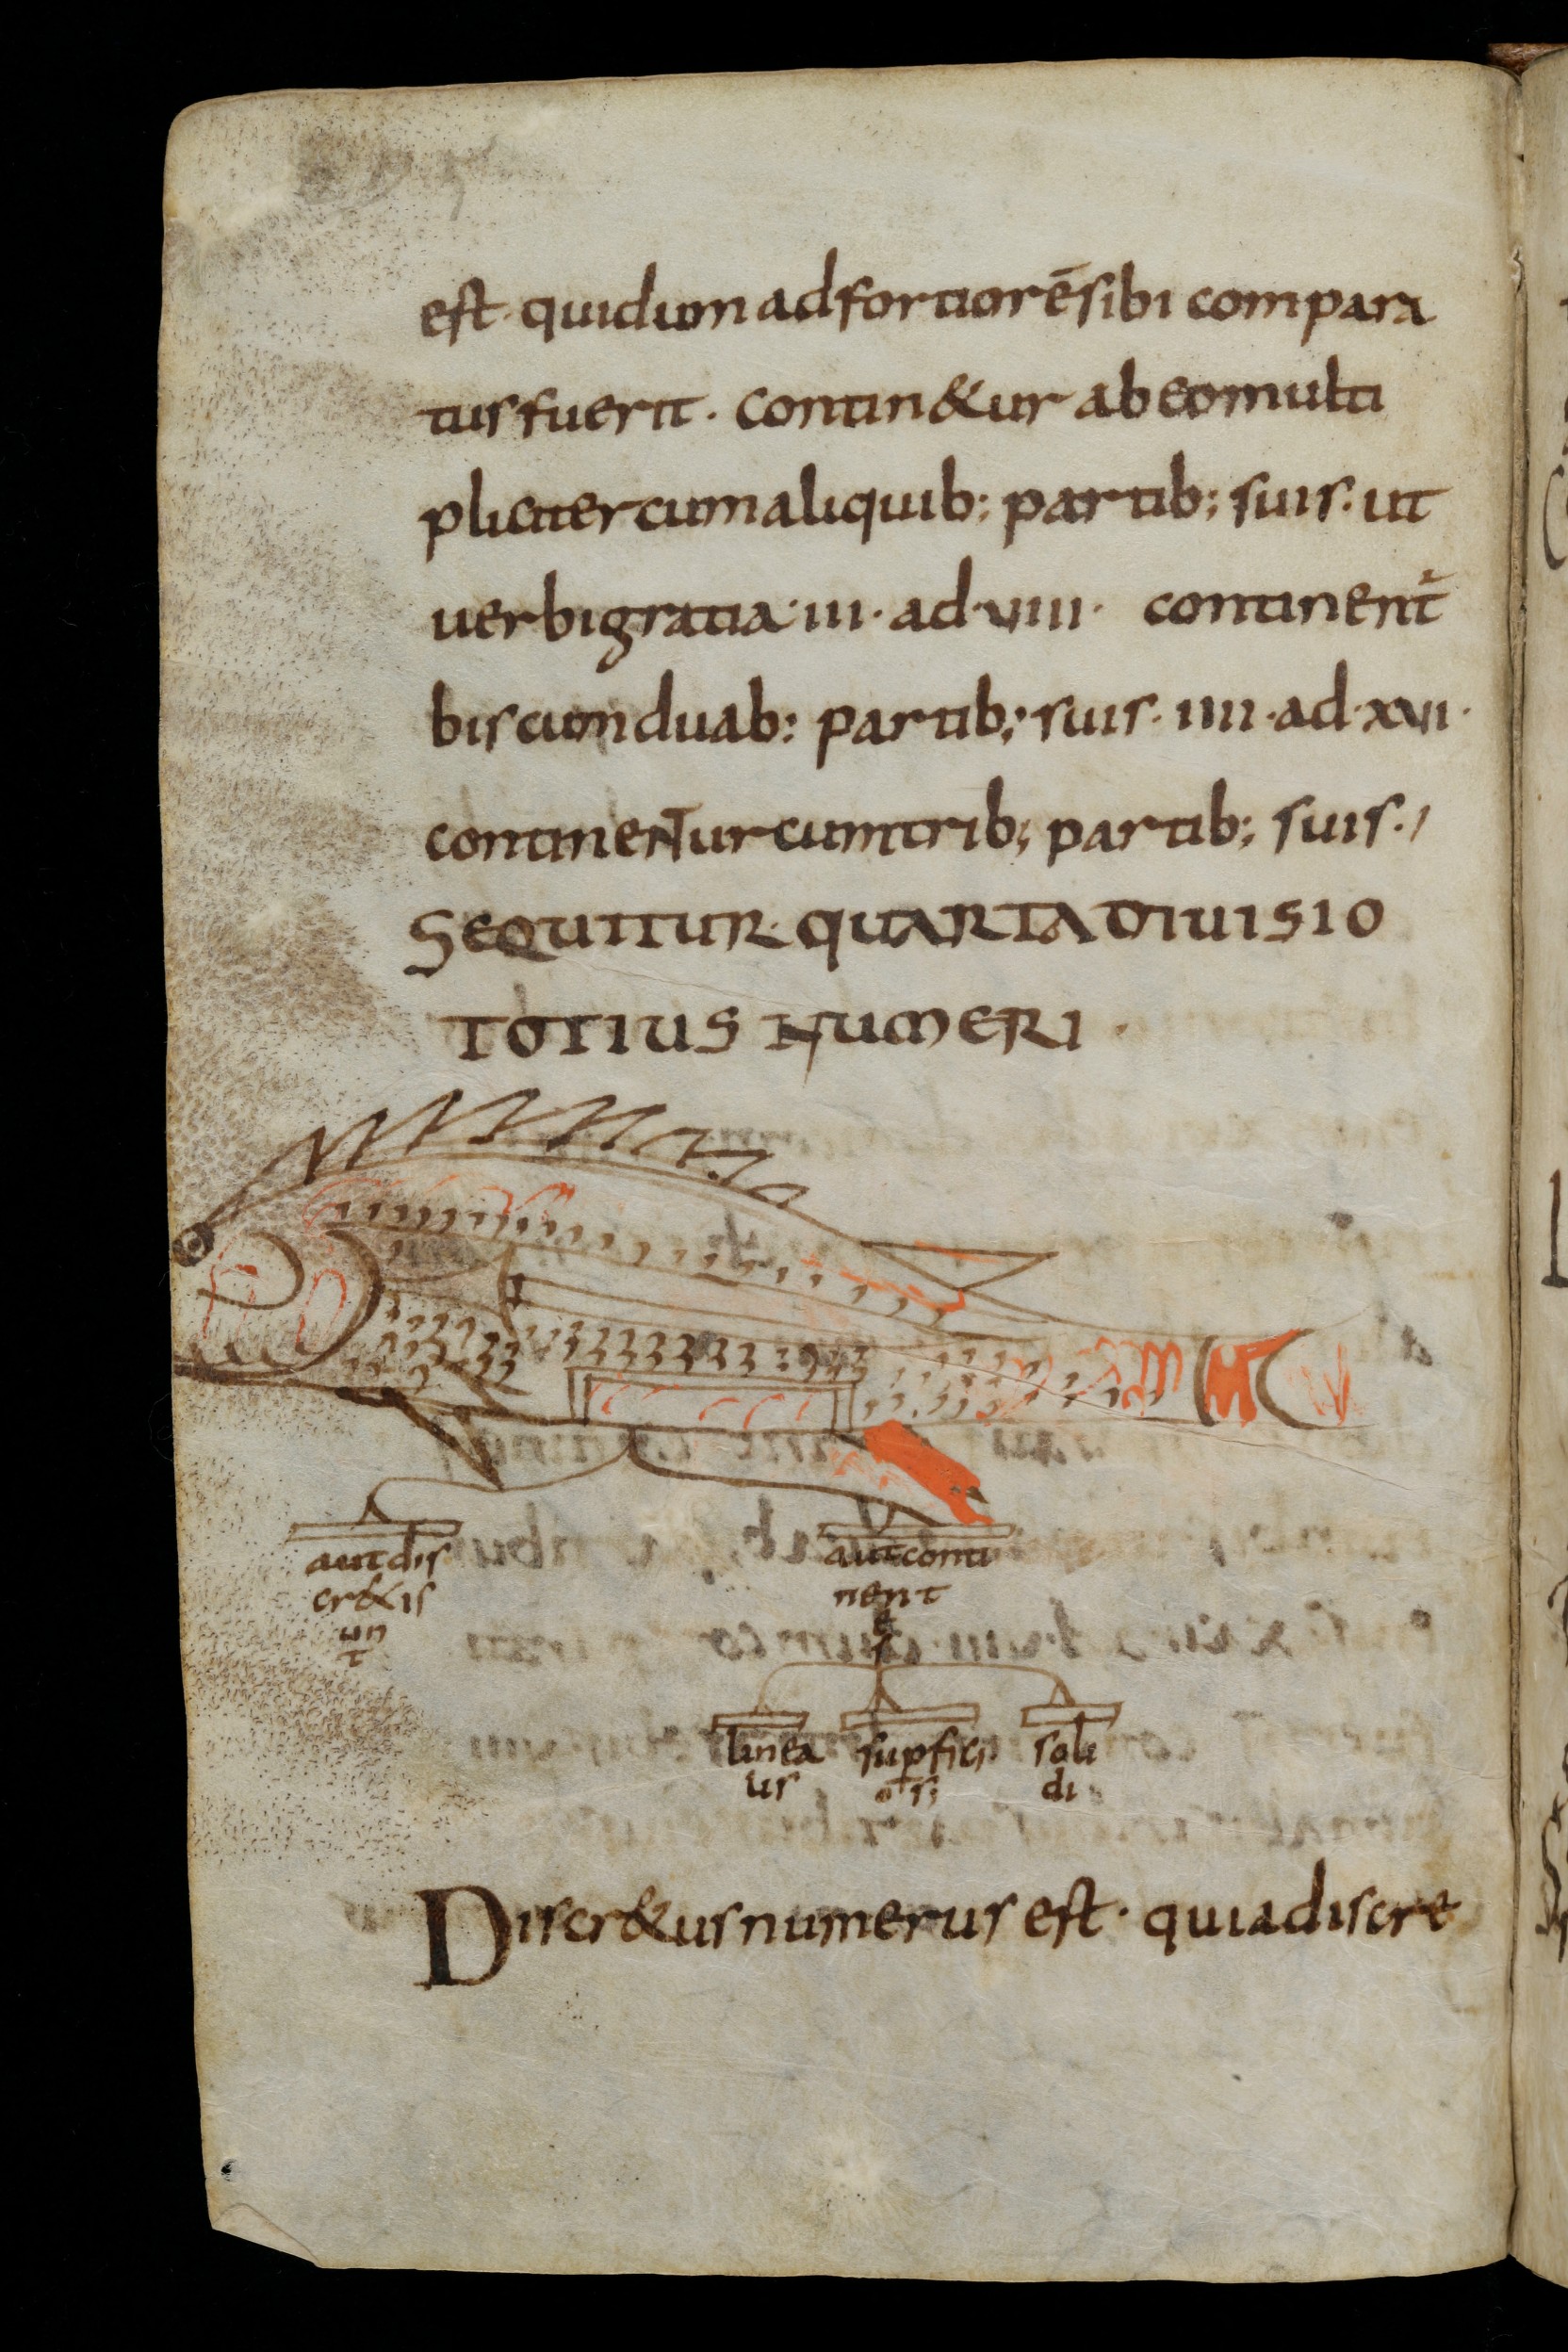 est· quidum adfortiorē sibi compara
tus fuerit. Contin&ur ab eo multi
pliciter cum aliquib; partib; suis. ut
uerbi gratia· III· ad· VIII· continent᷑
bis cum duab: partib; suis· IIII· ad· XVII·
continentur cum trib; partib; suis.,
SEQUITUR· QUARTA DIUISIO
TOTIUS NUMERI ·
aut dis
cr&is
un
t
aut conti
nent
e
s
linea
us
supfici
osi
soli
di
Discr&us numerus est· quia discre